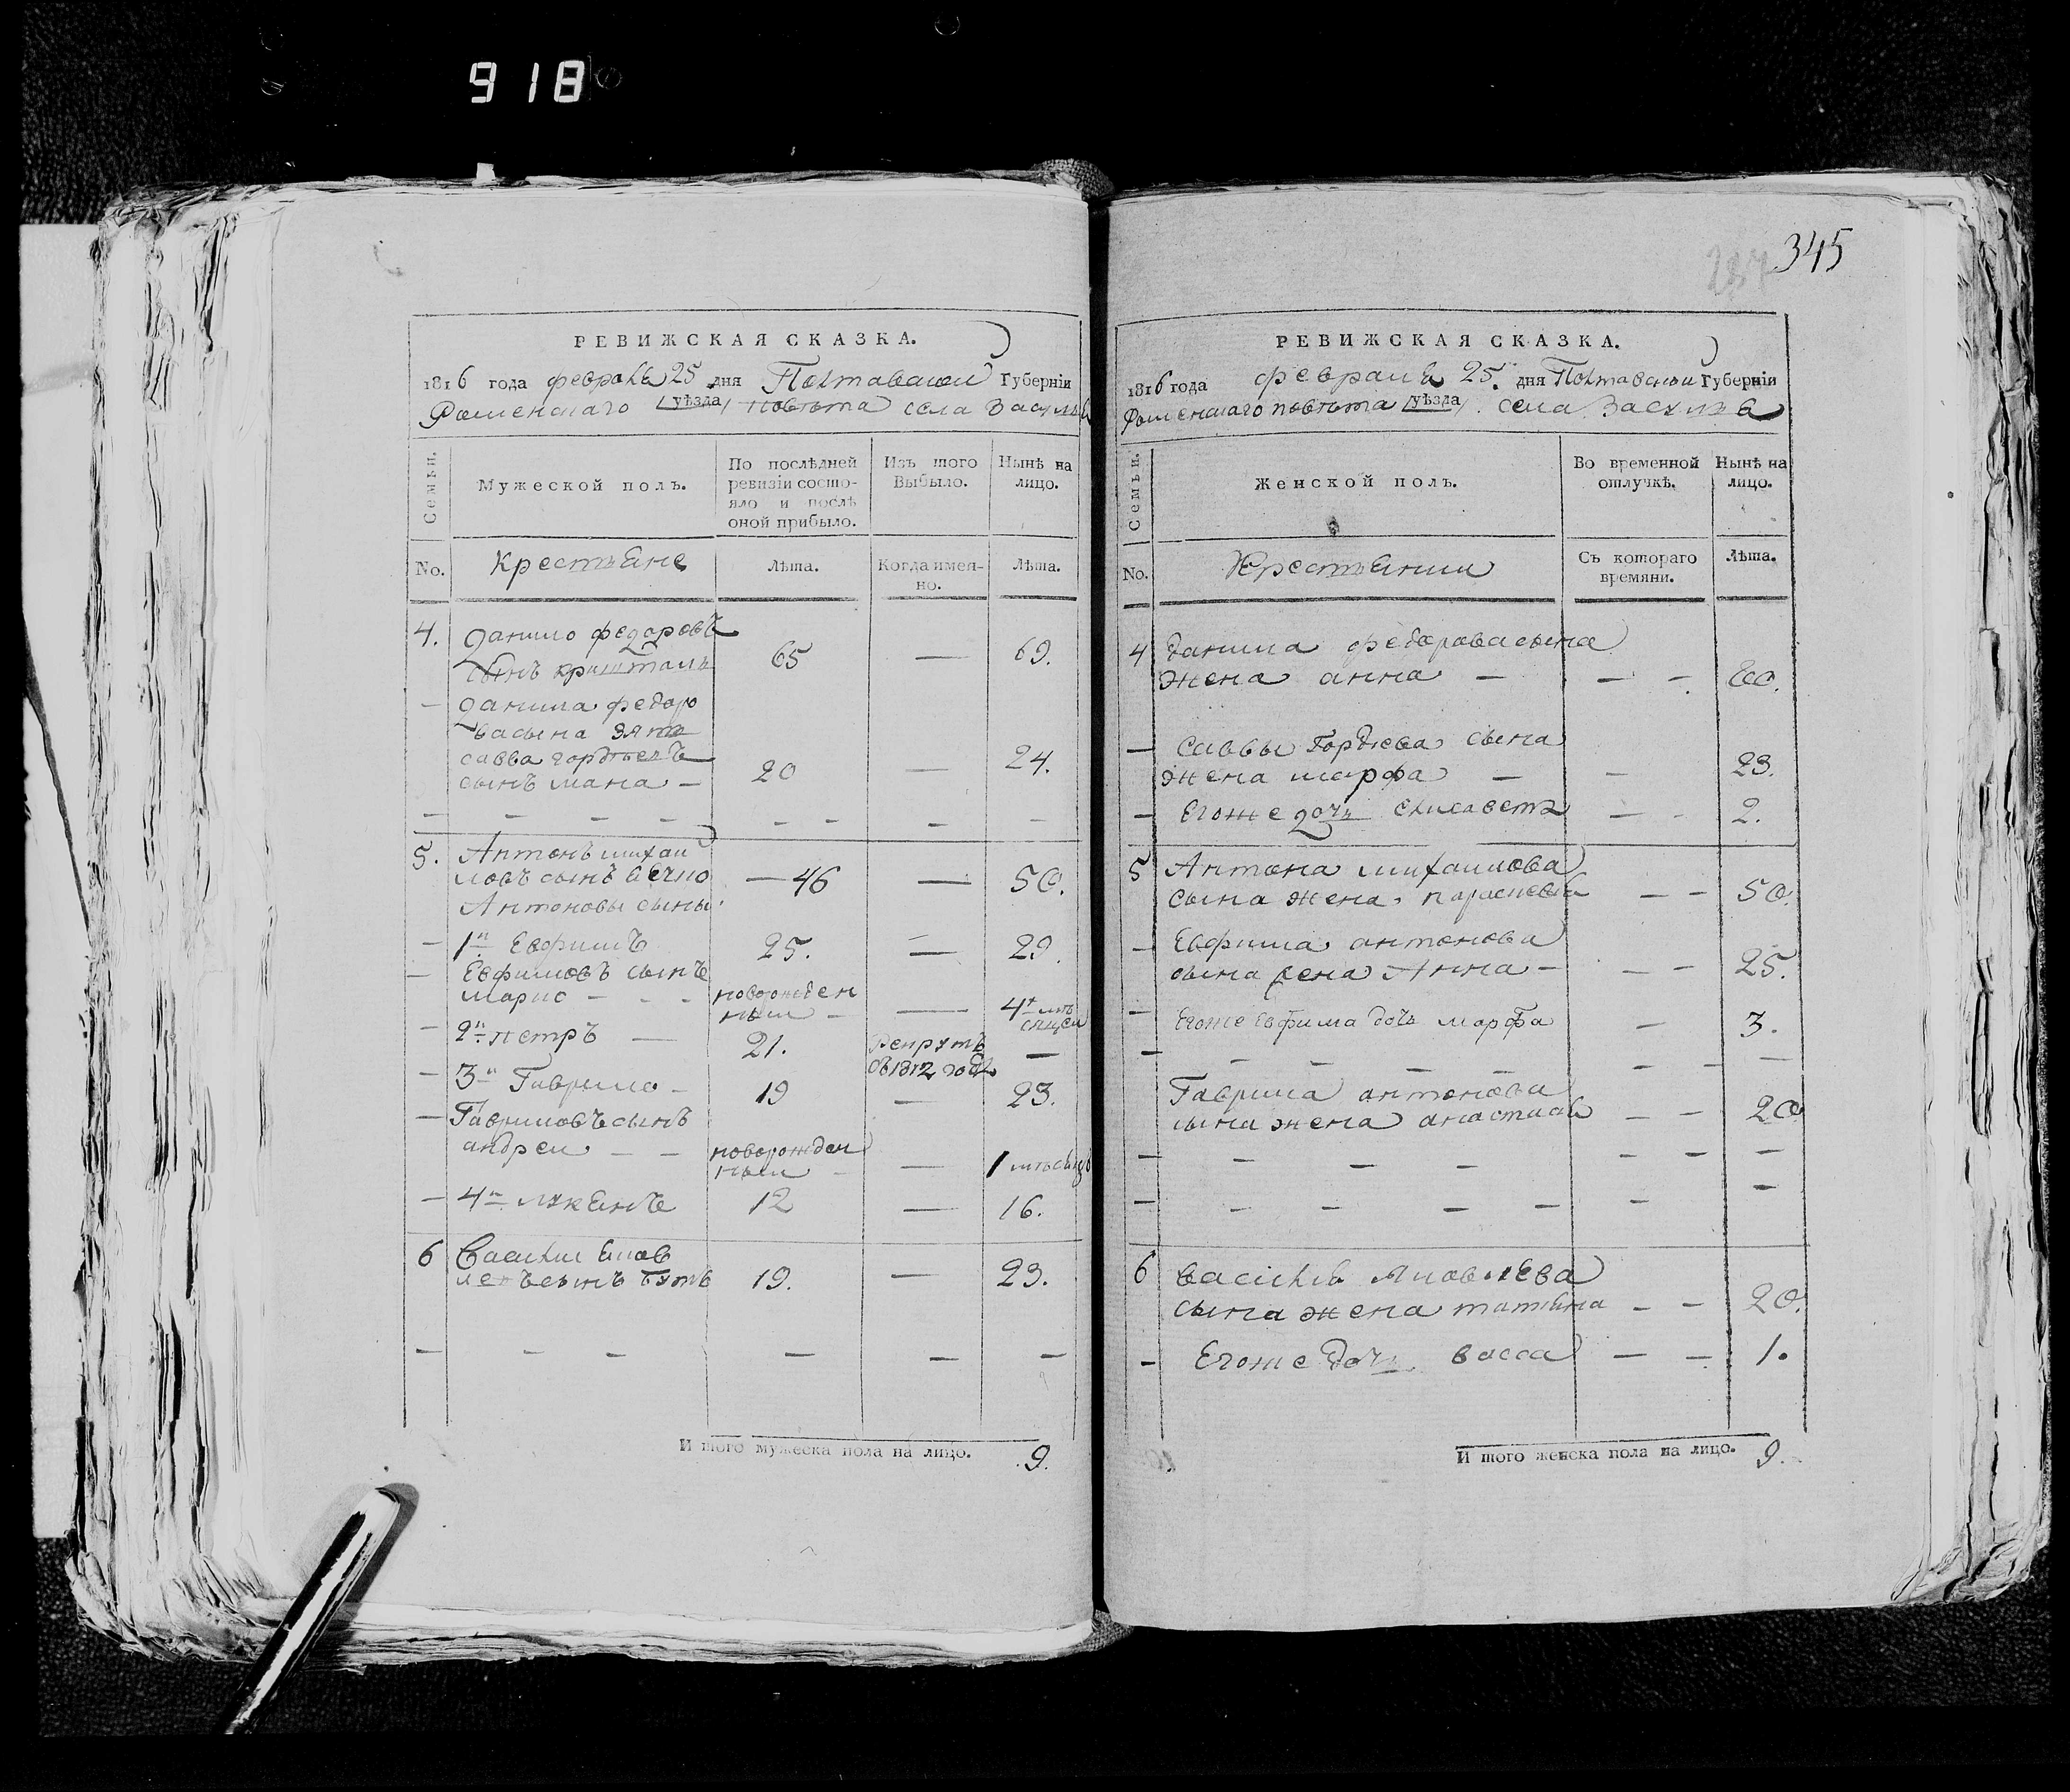 918
РЕВИЖСКАЯ СКАЗКА.
1816 года февраля 25 дня Полтавской Губерніи
Роменскаго /уѣзда/ повѣта села
Семьи.
Мужеской полъ.
По послѣдней ревизіи состо-
яло и послѣ оной прибыло.
Изъ того Выбыло.
Нынѣ на лицо.
No.
Крестьяне
Лѣта.
Когда имен-
но.
Лѣта.
4. Данило федоровъ
сынъ кришталь 65 — 69.
— Данила федоро
ва сына зять
савва гордѣевъ
сынъ 20 — 24.
5. Антонъ михаи
ловъ сынъ — 46 — 50.
Антоновы сыны
— 1й Евфимъ 25. — 29.
— Евфимовъ сынъ
марко — новорожден
ныи — 4х мѣ
сяцеи
— 2й петръ — 21. Рекрутъ
въ 1812 годѣ —
— 3й Гаврило — 19 — 23.
— Гавриловъ сынъ
андреи — новорожден
ныи — 1 мѣсяца
— 4й лукянъ 12 — 16.
6 Василии Яков
левъ сынъ 19. — 23.
И того мужеска пола на лицо. 9.
345
РЕВИЖСКАЯ СКАЗКА.
1816 года февраля 25. дня Полтавскои Губерніи
Роменскаго повѣта /уѣзда/ села
Семьи.
Женской полъ.
Во временной отлучкѣ.
Нынѣ на лицо.
No.
Крестьянки
Съ котораго времяни.
Лѣта.
4 Данила федорова сына
жена анна — — — 60.
— Саввы Гордѣева сына
жена марфа — — 23.
— Егоже дочь Елисаветъ — — 2.
5 Антона михаилова
сына жена парасковья — — 50.
— Евфима антонова
сына жена Анна — — — 25.
— Егоже Евфима дочь марфа — 3.
Гаврила антонова
сына жена анастасия — — 20
6 Василия Яковлева
сына жена татяна — — 20.
— Егоже дочь васса — — 1.
И того женска пола на лицо. 9.